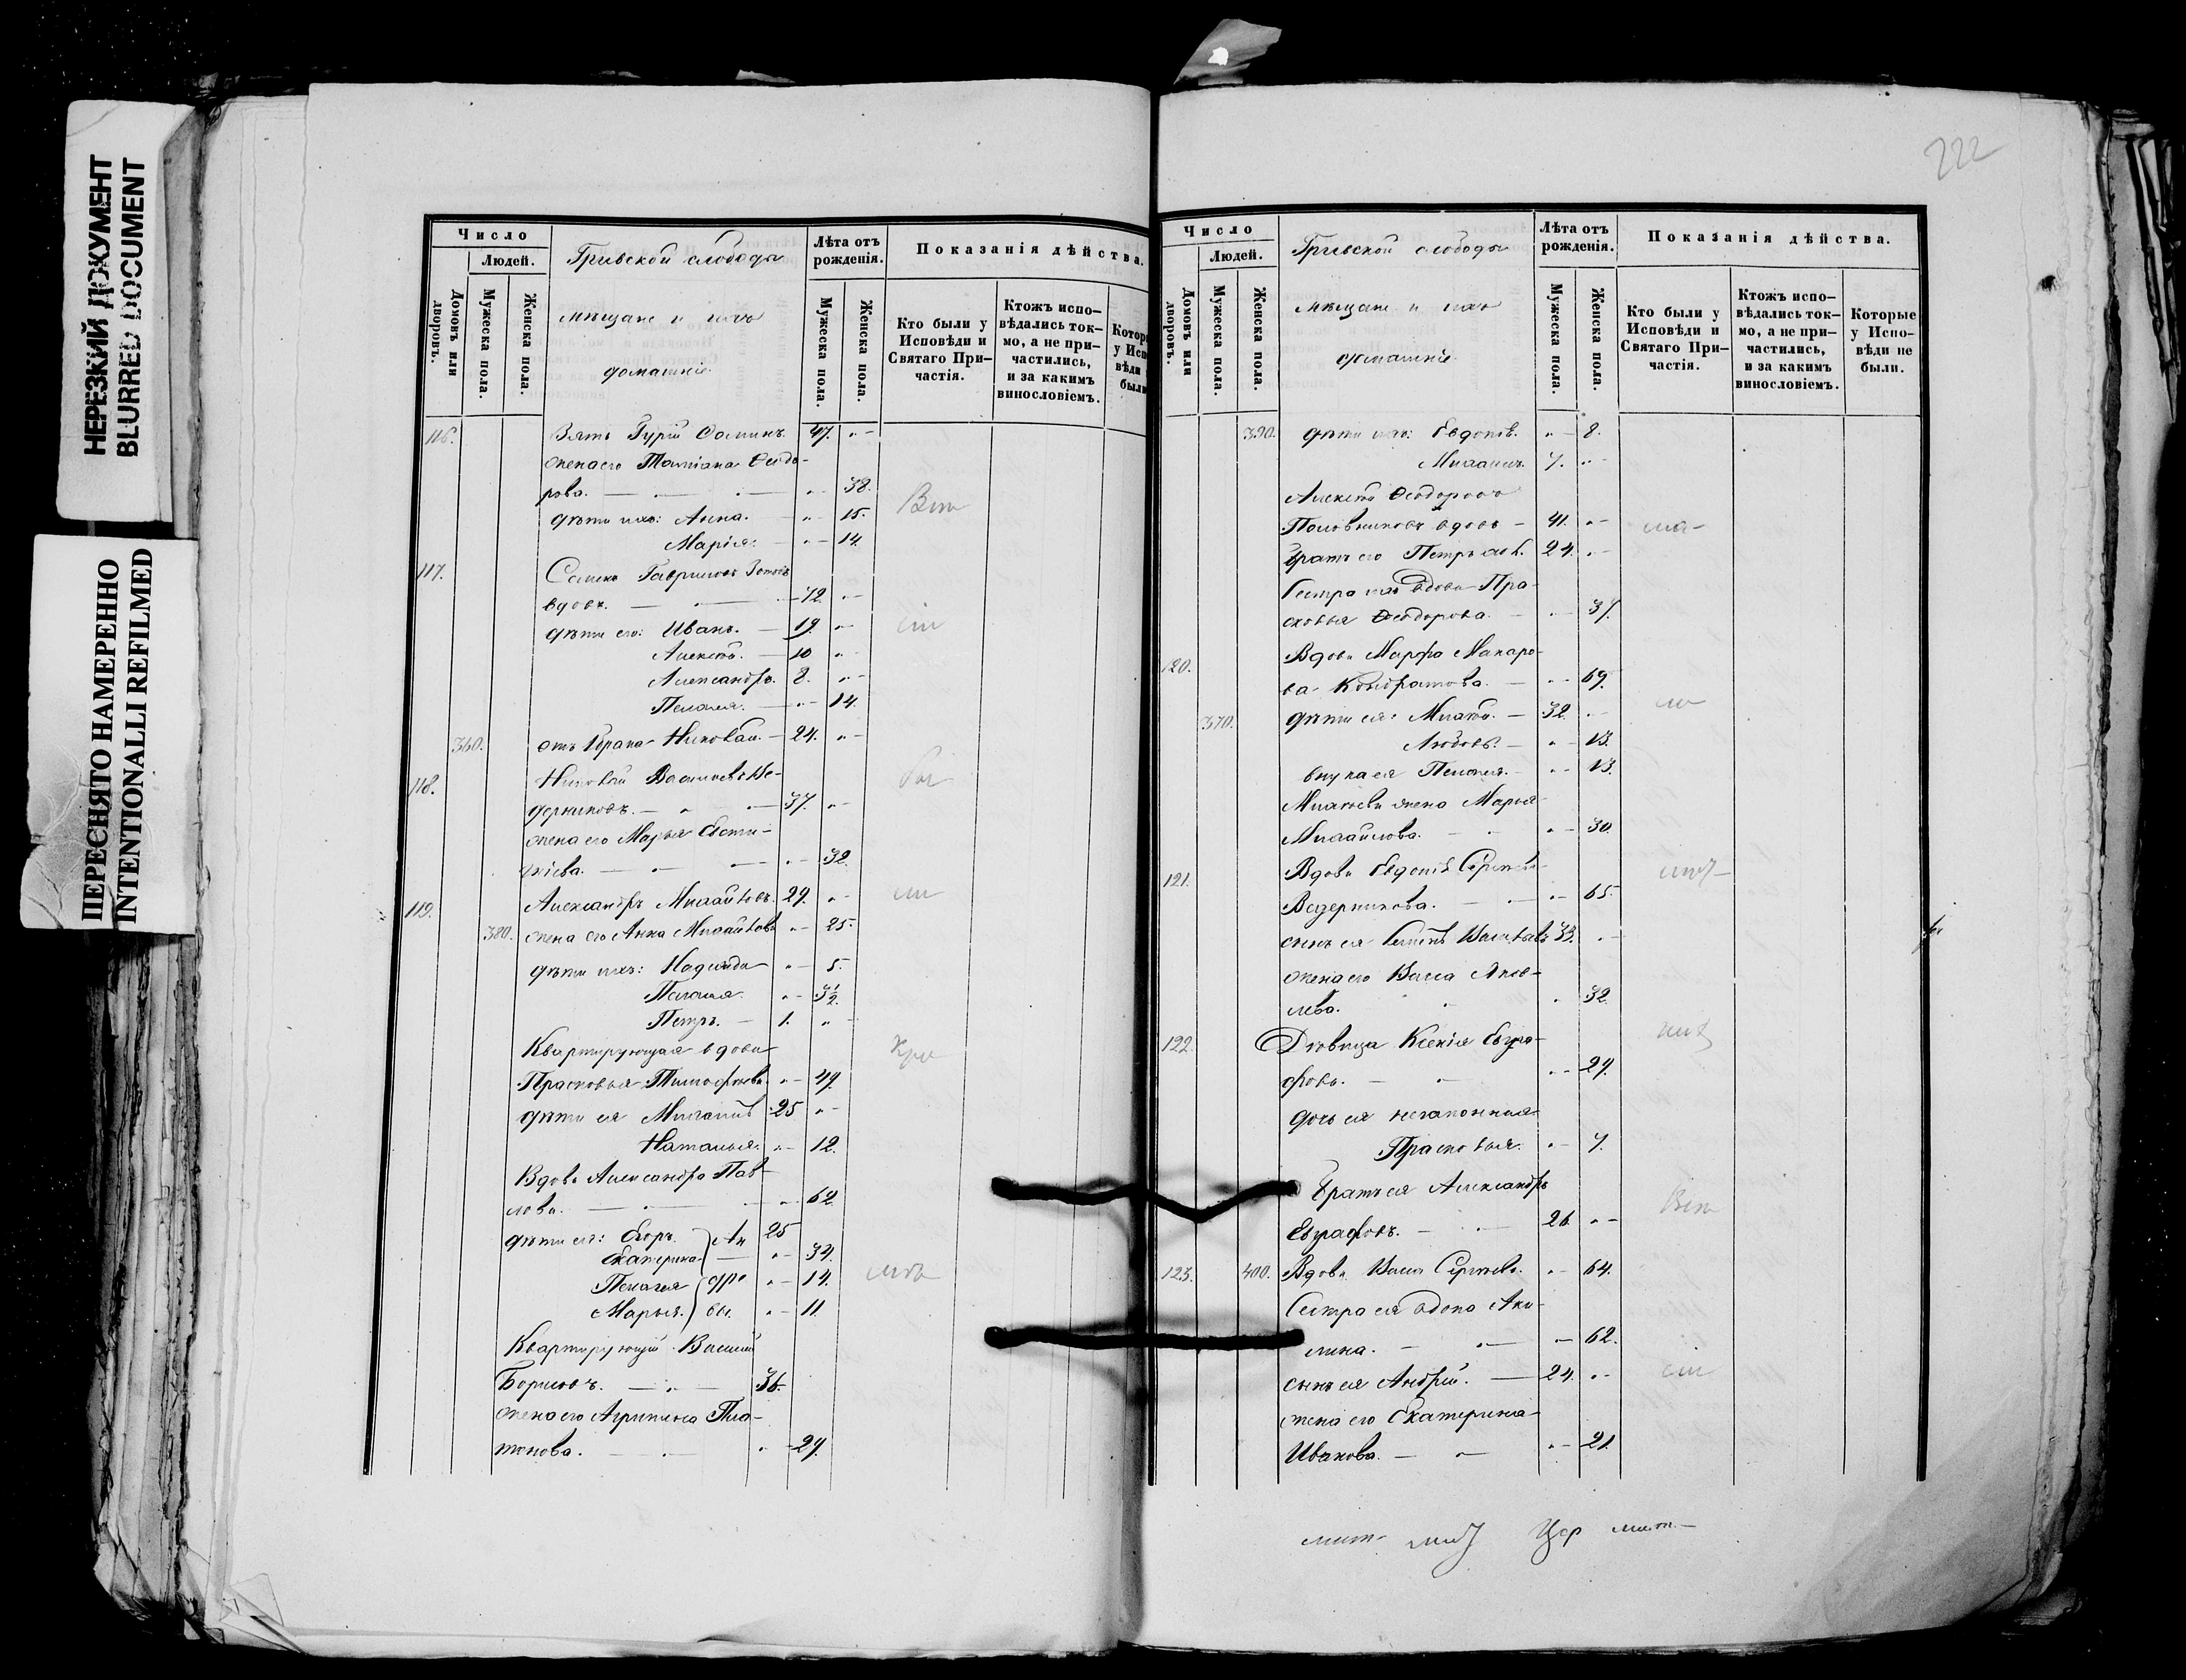 НЕРЕЗКИЙ ДОКУМЕНТ
BLURRED DOCUMENT
ПЕРЕСНЯТО НАМЕРЕННО
INTENTIONALLI REFILMED
Число
Людей.
Домовъ или дворовъ.
Мужеска пола.
Женска пола.
Гривской слободы
мѣщане и ихъ
домашніе.
Лѣта отъ рожденія.
Мужеска пола.
Женска пола.
Показанія дѣйства.
Кто были у Исповѣди и Святаго Причастія.
Ктожъ исповѣдались токмо, а не причастились, и за какимъ винословіемъ.
116. Зять Гурій 47. " –
жена его Татіана Ѳеодо–
рова. " – 38.
дѣти ихъ: Анна. " – 15.
Марія. " – 14.
117. Гавриловъ Зотовъ
вдовъ. 72. " –
дѣти его: Иванъ. – 19. " –
Алексѣй. – 10 " –
Александръ. 8. " –
Пелагея. " – 14.
360. отъ брака Николай. – 24. " –
118. Николай Васильевъ Ве–
дерниковъ. 37. " –
жена его Марья
" – 32.
119. Александръ Михайловъ. 29. " –
380. жена его Анна Михайлова " – 25.
дѣти ихъ: Надежда " – 5.
Пелагея. " – 3½.
Петръ. – 1. " –
Квартирующая вдова
Прасковья Тимофѣева. " – 49.
дѣти ея Михаилъ 25 " –
Наталья. " – 12.
Вдова Александра Пав–
лова. " – 62.
дѣти ея: Егоръ. 25
Екатерина " – 34.
Пелагея " – 14.
Марья. " – 11.
Квартирующій Василій
Борисовъ. 36.
жена его Агрипина Пла–
тонова. " – 29.
222
Число
Людей.
Домовъ или дворовъ.
Мужеска пола.
Женска пола.
Гривской слободы
мѣщане и ихъ
домашніе.
Лѣта отъ рожденія.
Мужеска пола.
Женска пола.
Показанія дѣйства.
Кто были у Исповѣди и Святаго Причастія.
Ктожъ исповѣдались токмо, а не причастились, и за какимъ винословіемъ.
Которые у Исповѣди не были.
390. дѣти ихъ: Евдокія. " – 8.
Михаилъ. 7. " –
Алексѣй Ѳеодоровъ
Половниковъ вдовъ – 41. " –
братъ его Петръ 24. " –
Сестра ихъ вдова Пра–
сковья Ѳеодорова. " – 37.
120. Вдова Марфа Макаро–
ва Кондратова. – " – 69.
370. дѣти ея: – 32. " –
Любовь. – " – 13.
внука ея Пелагея. " – 13.
жена Марья
Михайлова. " – 30.
121. Вдова Евдокія Сергѣева
Ведерникова. " – 65.
сынъ ея Васильевъ 33. " –
жена его Васса Яков–
лева. " 32.
122. Дѣвица Ксенія Евгра–
фова. " – 29.
дочь ея незаконная
Прасковья. " – 7.
братъ ея Александръ
Евграфовъ. 26. " –
123. 400. Вдова Васса Сергѣева. " – 64.
Сестра ея вдова Аку–
лина. " – 62.
сынъ ея Андрей. – 24. " –
жена его Екатерина
Иванова. – " – 21.